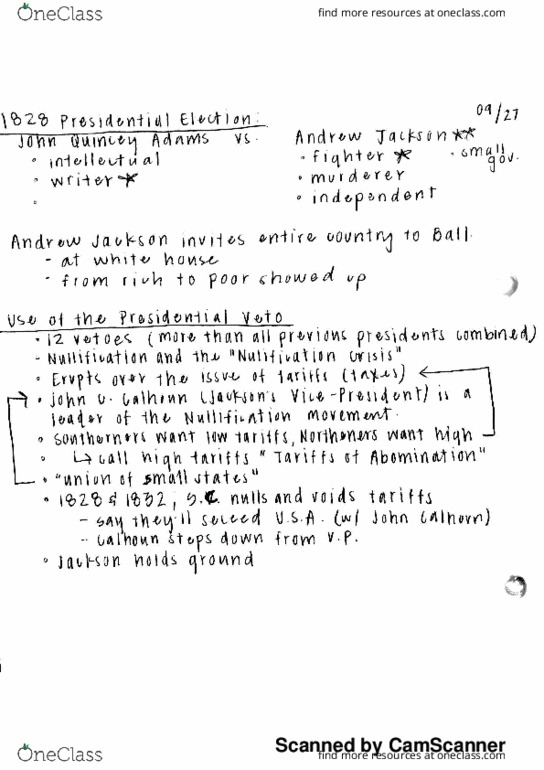 OneClass
find more resources at oneclass.com
09/27
1828 Presidential Election:
John Quincey Adams vs. Andrew Jackson**
• intellectual • fighter * • small gov.
• writer * • murderer
• • independent
Andrew Jackson invites entire country to Ball.
- at white house
- from rich to poor showed up
Use of the Presidential Veto
• 12 vetoes (more than all previous presidents combined)
- Nullification and the "Nullification Crisis"
• Erupts over the issue of tariffs (taxes)
• John C. Calhoun (Jackson's Vice-President) is a
leader of the Nullification movement.
• Southerners want low tariffs, Northeners want high
• ↳ call high tariffs "Tariffs of Abomination"
• "union of small states"
• 1828 & 1832, S.C. nulls and voids tariffs
- say they'll seceed U.S.A. (w/ John Calhoun)
- Calhoun steps down from V.P.
• Jackson holds ground
Scanned by CamScanner
OneClass
find more resources at oneclass.com